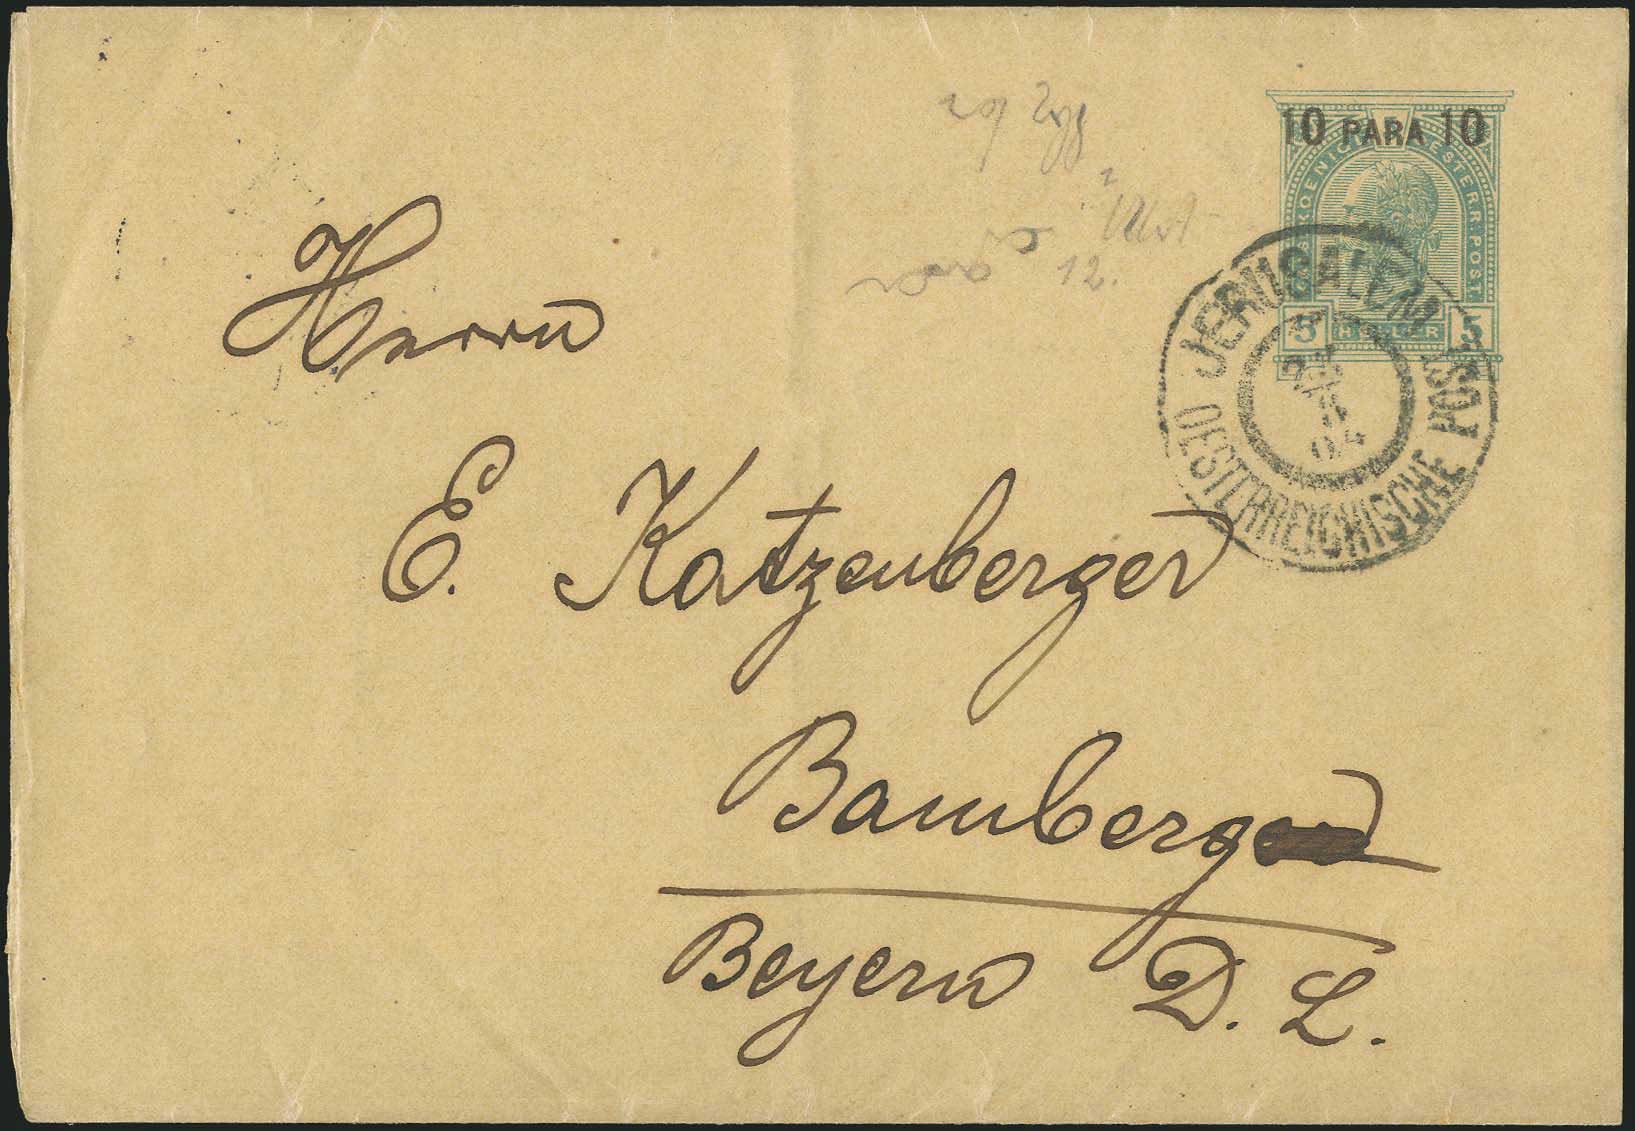 10 PARA 10
5 HELLER 5
JERUSALEM
OESTERREICHISCHE POST
04
12.
Herrn
E. Katzenberger
Bamberg
Beyern D. L.